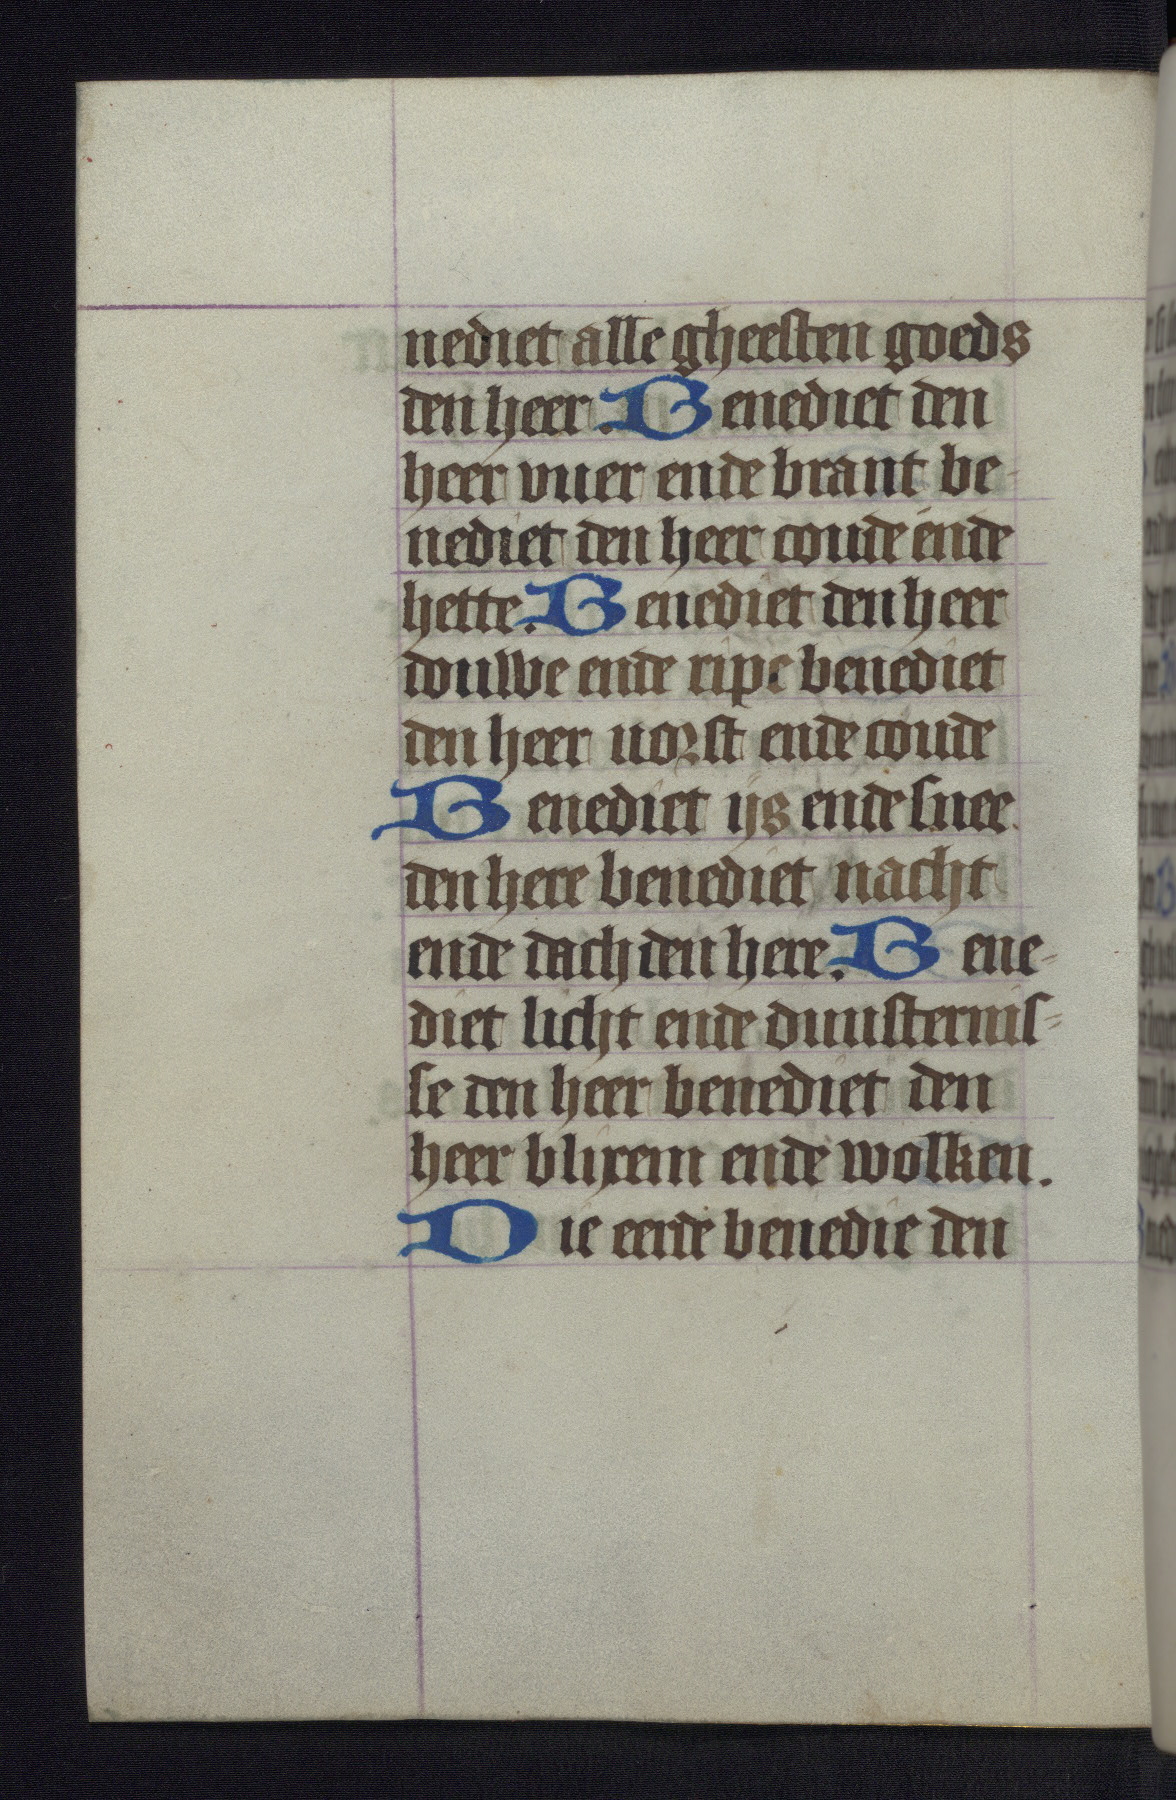 nediet alle gheesten goeds
den heer. Benediet den
heer vuer ende brant be-
nediet den heer coude ende
hette. Benediet den heer
douwe ende ripe benediet
den heer vorst ende coude
Benediet ijs ende snee
den here benediet nacht
ende dach den here. Bene-
diet licht ende duusternis-
se den heer benediet den
heer blixem ende wolken.
Die eerde benedie den